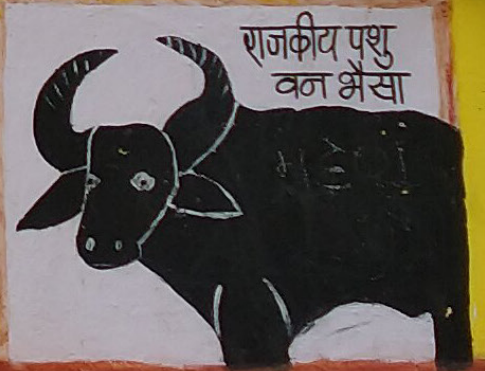 राजकीय पशु
वन भैसा